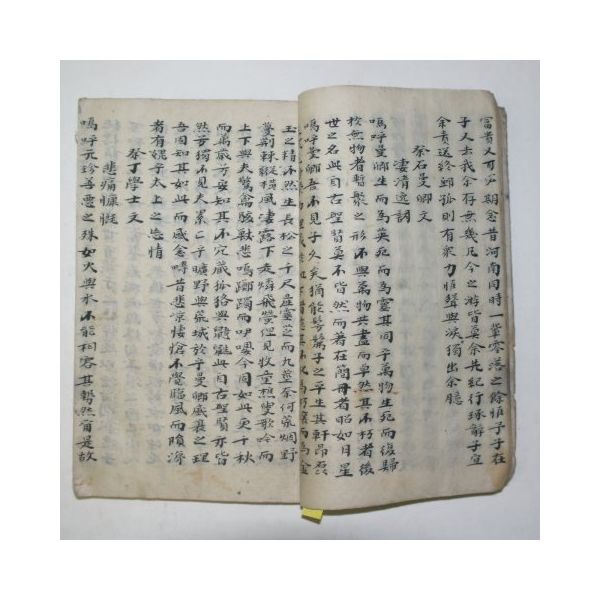 富貴人可乎期念昔河南同時一輩零落之餘惟予子在
子人去我余存無幾凡今之游皆莫余先紀行琢辭子宜
余責送終卹孤則有衆力惟聲與淚獨出余臆
祭石曼卿文
淒清逸調
嗚呼曼卿生而為英死而為靈其同乎萬物生死而復歸
於無物者暫聚之形不與萬物共盡而卓然其不朽者後
世之名此自古聖賢莫不皆然而著在簡冊者昭如日星
嗚呼曼卿吾不見子久矣猶能髣髴子之平生其軒昂磊
朽壤而為金
玉之精不然生長松之千尺産靈芝而九莖奈何荒烟野
蔓荊棘縱橫風凄露下走燐飛螢但見牧童樵叟歌吟而
上下與夫驚禽駭獸悲鳴躑躅而咿嚶今固如此更千秋
而萬歲兮安知其不穴藏狐貉與鼯鼪此自古聖賢亦皆
然兮獨不見夫累々乎曠野與荒城嗚乎曼卿盛衰之理
吾固知其如此而感念疇昔悲凉悽愴不覺臨風而隕涕
者有媿乎太上之忘情
祭丁學士文
悲痛慷慨
嗚呼元珍善惡之殊如火與水不能相容其勢然爾是故